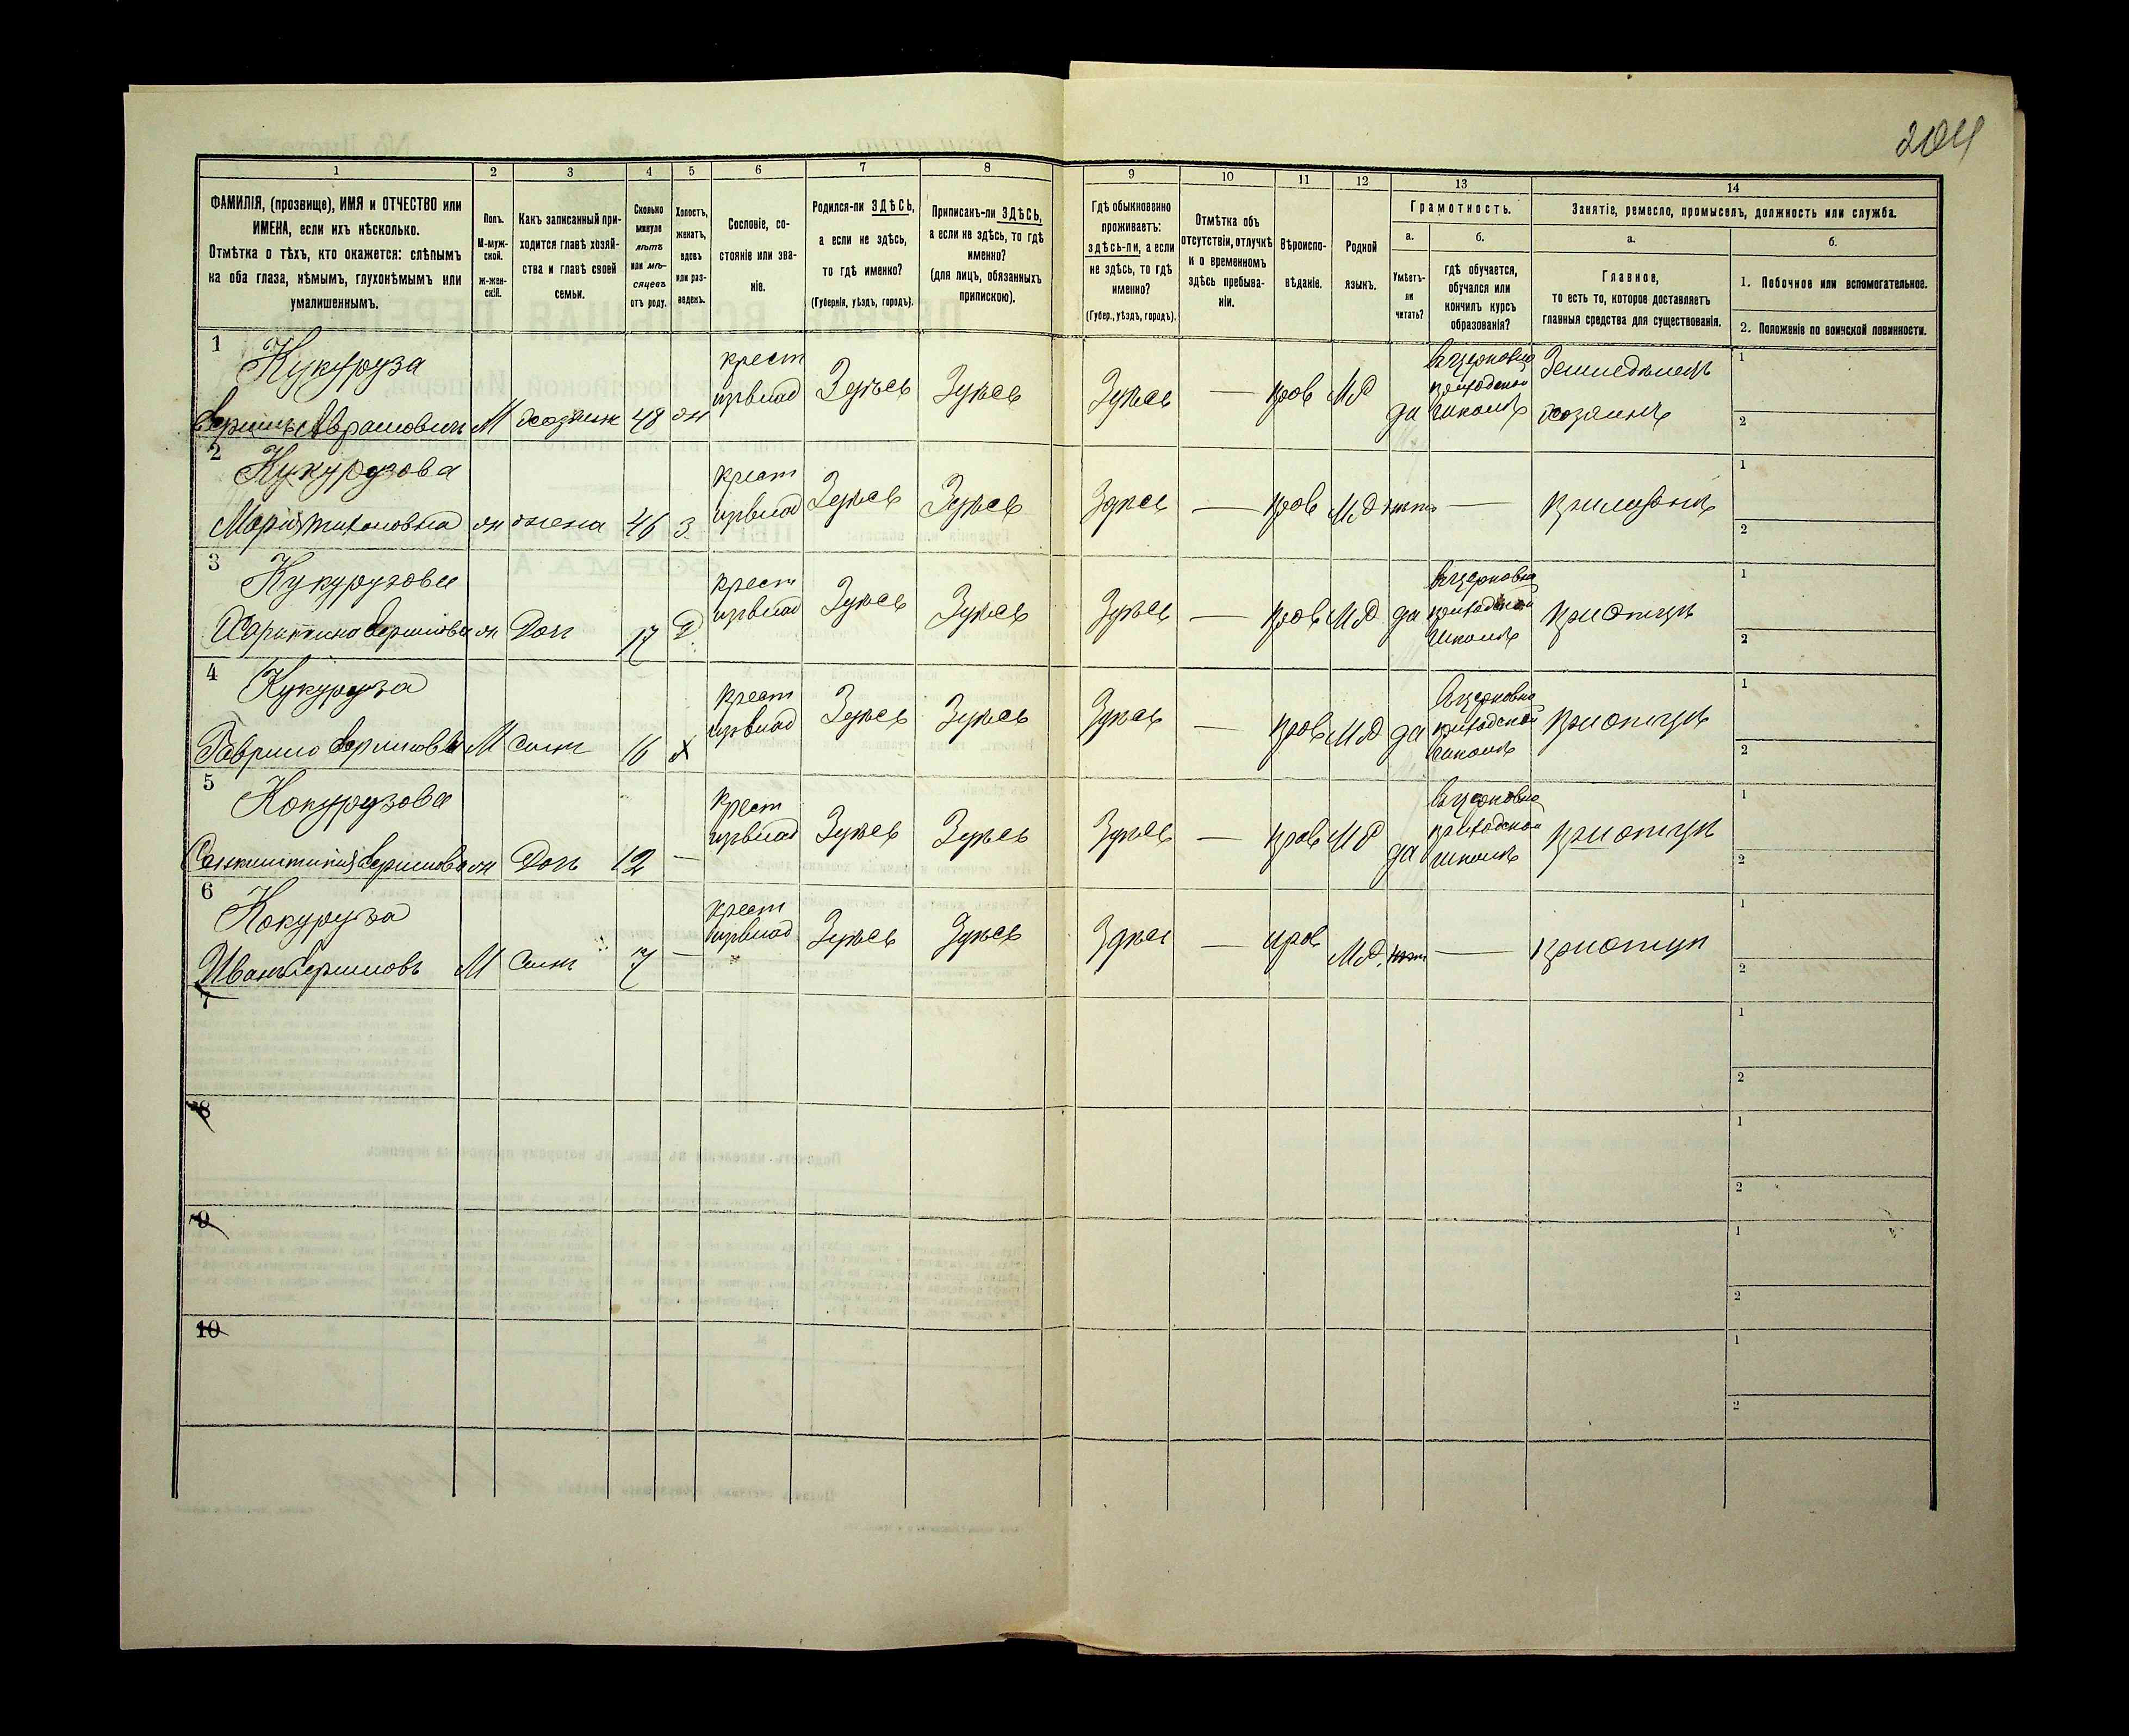 204
1
2
3
4
5
6
7
8
9
10
11
12
13
14
ФАМИЛІЯ, (прозвище), ИМЯ и ОТЧЕСТВО или
ИМЕНА, если ихъ нѣсколько.
Отмѣтка о тѣхъ, кто окажется: слѣпымъ
на оба глаза, нѣмымъ, глухонѣмымъ или
умалишеннымъ.
Полъ.
М-муж-
ской.
ж-жен-
скій.
Какъ записанный при-
ходится главѣ хозяй-
ства и главѣ своей
семьи.
Сколько
минуло
лѣтъ
или мѣ-
сяцевъ
отъ роду.
Холостъ,
женатъ,
вдовъ
или раз-
веденъ.
Сословіе, со-
стояніе или зва-
ніе.
Родился-ли ЗДѢСЬ,
а если не здѣсь,
то гдѣ именно?
(Губернія, уѣздъ, городъ).
Приписанъ-ли ЗДѢСЬ,
а если не здѣсь, то гдѣ
именно?
(для лицъ, обязанныхъ
припискою).
Гдѣ обыкновенно
проживаетъ:
здѣсь-ли, а если
не здѣсь, то гдѣ
именно?
(Губер., уѣздъ, городъ).
Отмѣтка объ
отсутствіи, отлучкѣ
и о временномъ
здѣсь пребыва-
ніи.
Вѣроиспо-
вѣданіе.
Родной
языкъ.
Грамотность.
а.
Умѣетъ-
ли
читать?
б.
гдѣ обучается,
обучался или
кончилъ курсъ
образованія?
Занятіе, ремесло, промыселъ, должность или служба.
а.
Главное,
то есть то, которое доставляетъ
главныя средства для существованія.
б.
1. Побочное или вспомогательное.
2. Положеніе по воинской повинности.
1
Кукуруза
Аврамовичъ М хозяинъ 48 ж
крест
Здѣсь Здѣсь Здѣсь — прав МД да
церковно
приходской
школѣ
Земледѣлецъ
хозяинъ
1
2
2
Кукурузова
Марія ж жена 46 з
крест
Здѣсь Здѣсь Здѣсь — прав МД нѣтъ —
1
2
3
Кукурузова
ж Доч 17 Д
крест
Здѣсь Здѣсь Здѣсь — прав МД да
церковно
приходской
школѣ
1
2
4
Кукуруза
Гаврило М Сынъ 16 х
крест
Здѣсь Здѣсь Здѣсь — прав МД да
церковно
приходской
школѣ
1
2
5
Кокурузова
ж Доч 12 —
крест
Здѣсь Здѣсь Здѣсь — прав МД да
церковно
приходской
школѣ
1
2
6
Кокуруза
Иванъ М Сынъ 7 —
крест
Здѣсь Здѣсь Здѣсь — прав МД нѣтъ —
1
2
7
1
2
8
1
2
9
1
2
10
1
2